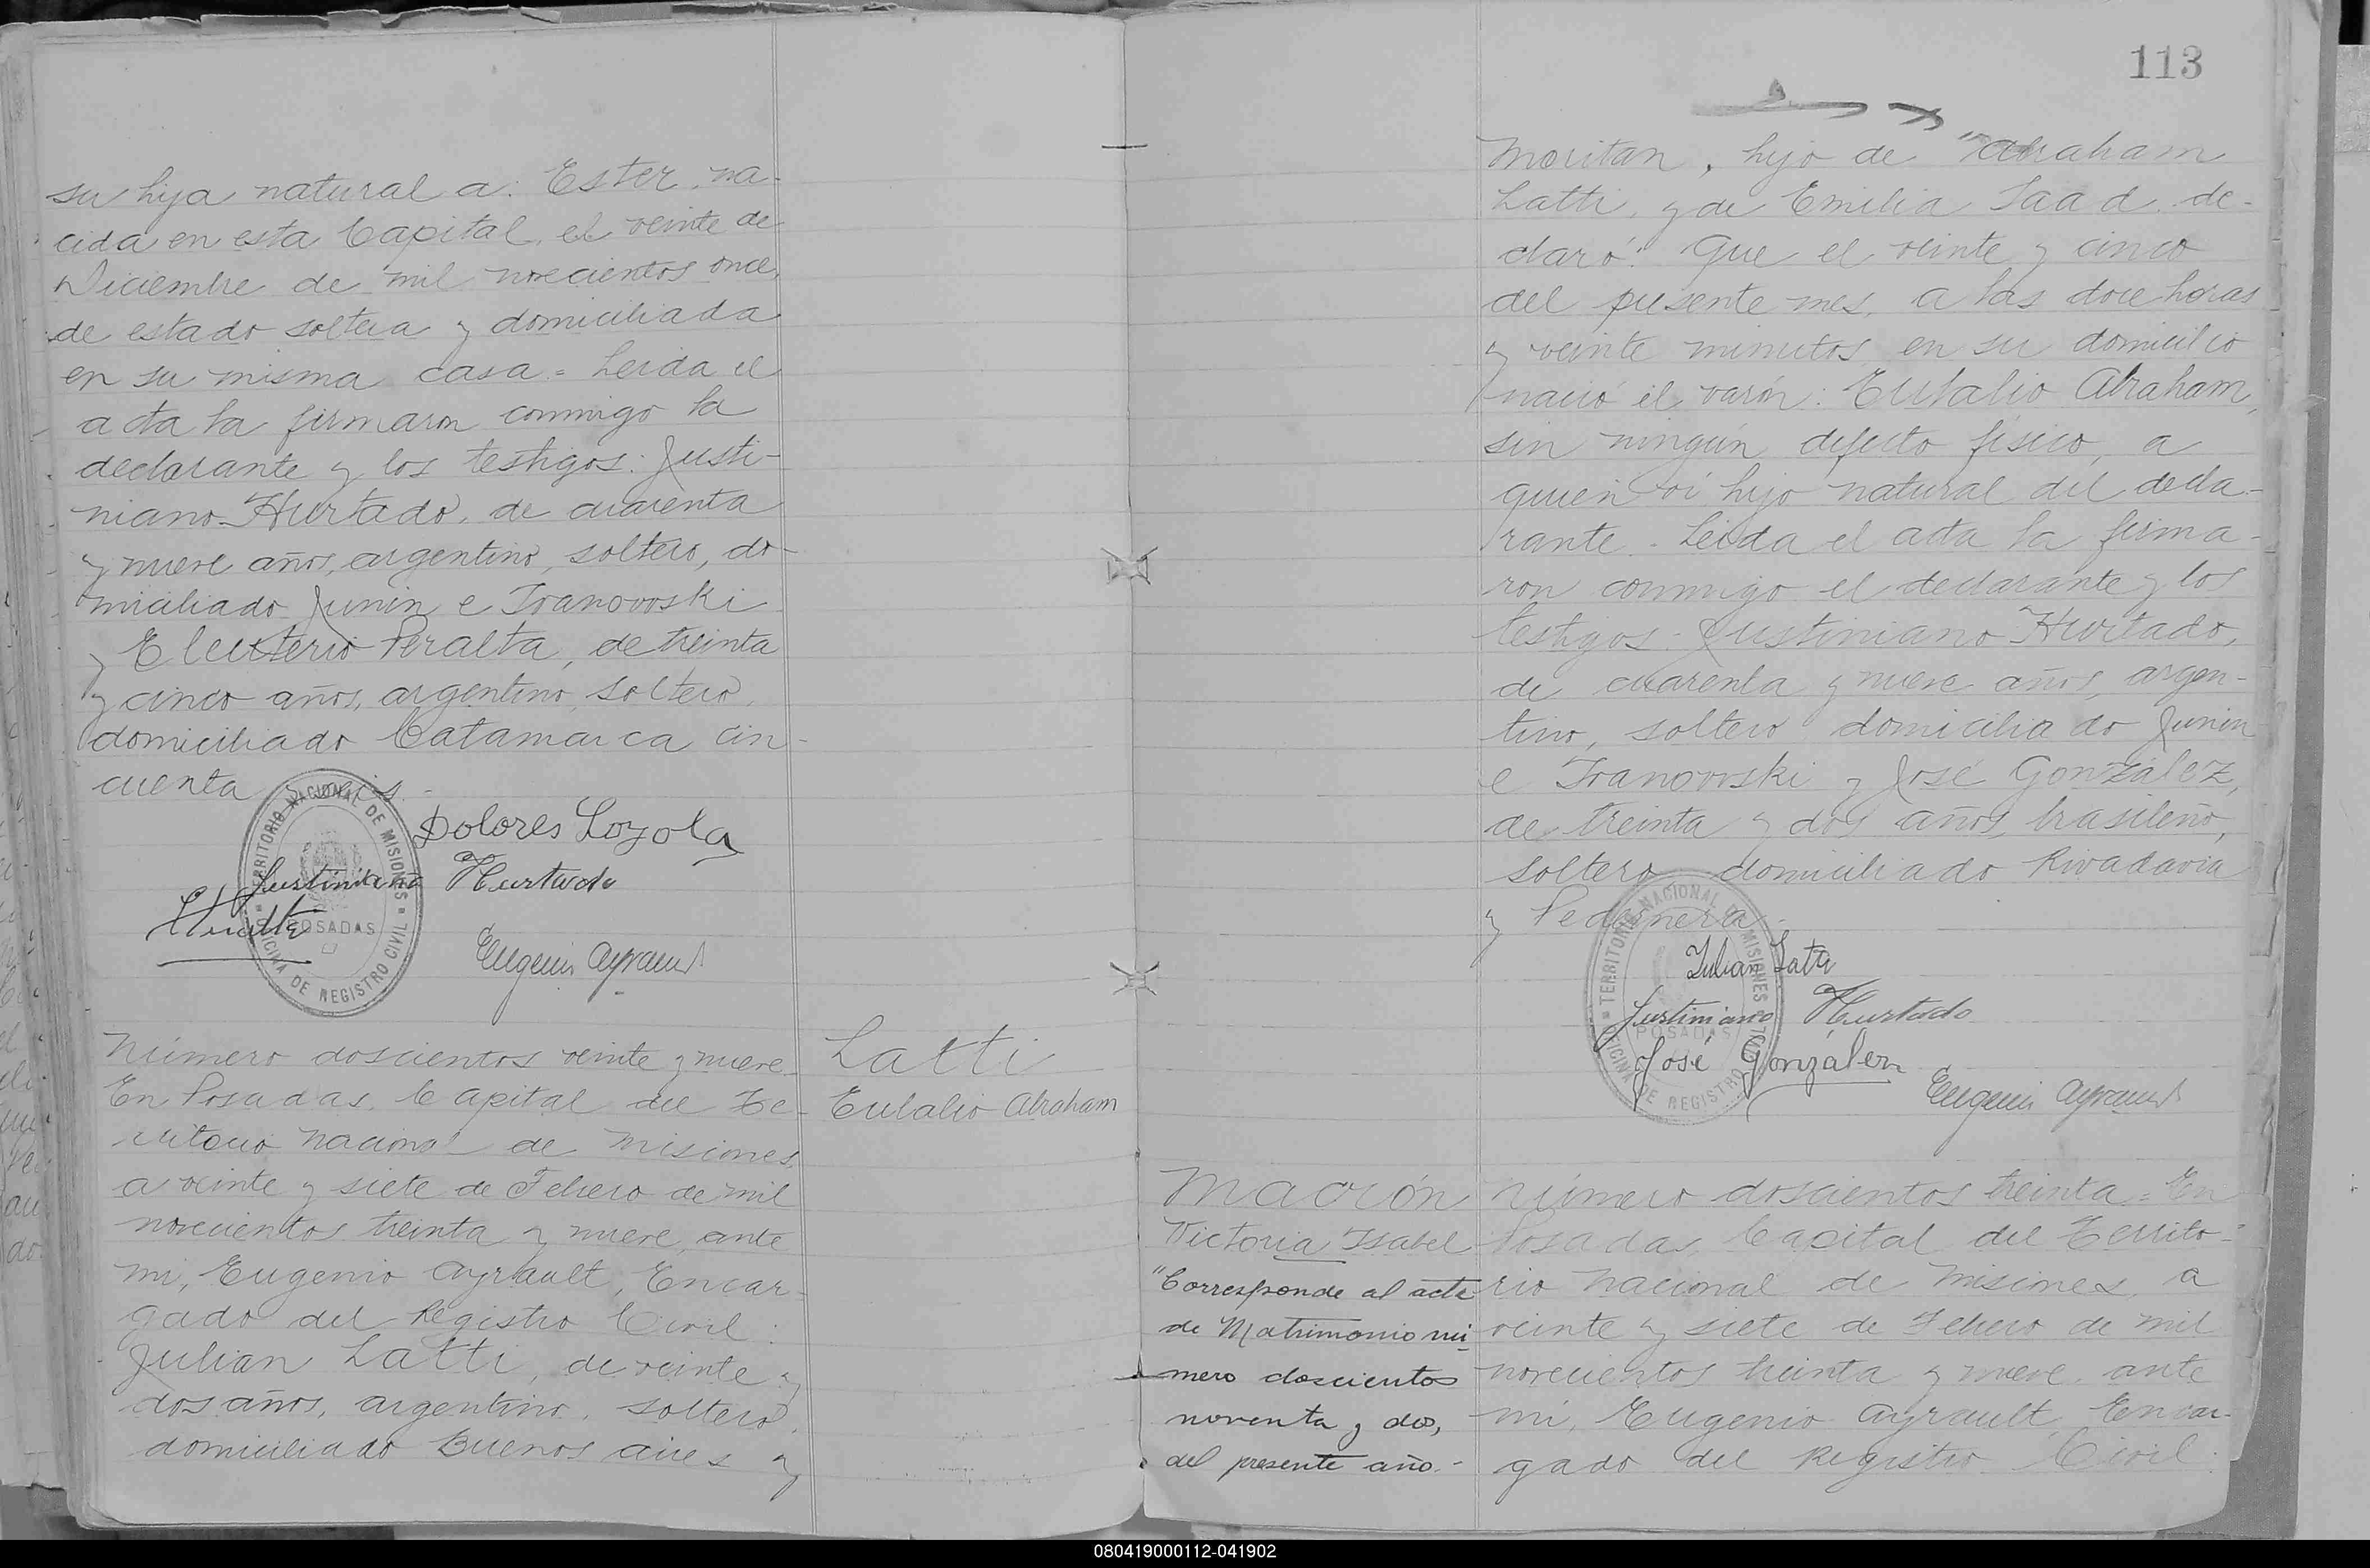 su hija natural a: Ester, na-
cida en esta Capital, el veinte de
Diciembre de mil novecientos once,
de estado soltera y domiciliada
en su misma casa = Leida el
acta la firmaron conmigo la
declarante y los testigos: Justi-
niano Hurtado, de cuarenta
y nueve años, argentino, soltero, do-
miciliado Junin e Ivanovski
y Eleuterio Peralta, de treinta
y cinco años, argentino, soltero,
domiciliado Catamarca cin-
cuenta y seis.-
Dolores Loyola
Justiniano Hurtado
Eugenio Ayrault
TERRITORIO NACIONAL DE MISIONES
POSADAS
OFICINA DE REGISTRO CIVIL
Número doscientos veinte y nueve
En Posadas, Capital del Te-
rritorio Nacional de Misiones,
a veinte y siete de Febrero de mil
novecientos treinta y nueve, ante
mi, Eugenio Ayrault, Encar-
gado del Registro Civil:
Julian Latti, de veinte y
dos años, argentino, soltero,
domiciliado Buenos Aires y
Latti
Eulalio Abraham
113
Moritan, hijo de Abraham
Latti, y de Emilia Saad, de-
claró: Que el veinte y cinco
del presente mes, a las doce horas
y veinte minutos en su domicilio
nació el varón: Eulalio Abraham,
sin ningún defecto físico, a
quien ví hijo natural del decla-
rante.- Leida el acta la firma-
ron conmigo el declarante y los
testigos: Justiniano Hurtado,
de cuarenta y nueve años, argen-
tino, soltero domiciliado Junin
e Ivanovski y José González,
de treinta y dos años, brasileño,
soltero domiciliado Rivadavia
y Pedernera.-
Julian Latti
Justiniano Hurtado
José González
Eugenio Ayrault
TERRITORIO NACIONAL DE MISIONES
POSADAS
OFICINA DE REGISTRO CIVIL
Victoria Isabel
"Corresponde al acta
de Matrimonio nú-
mero doscientos
noventa y dos,
del presente año.-
Número doscientos treinta = En
Posadas, Capital del Territo-
rio Nacional de Misiones, a
veinte y siete de Febrero de mil
novecientos treinta y nueve, ante
mi, Eugenio Ayrault, Encar-
gado del Registro Civil:
080419000112-041902